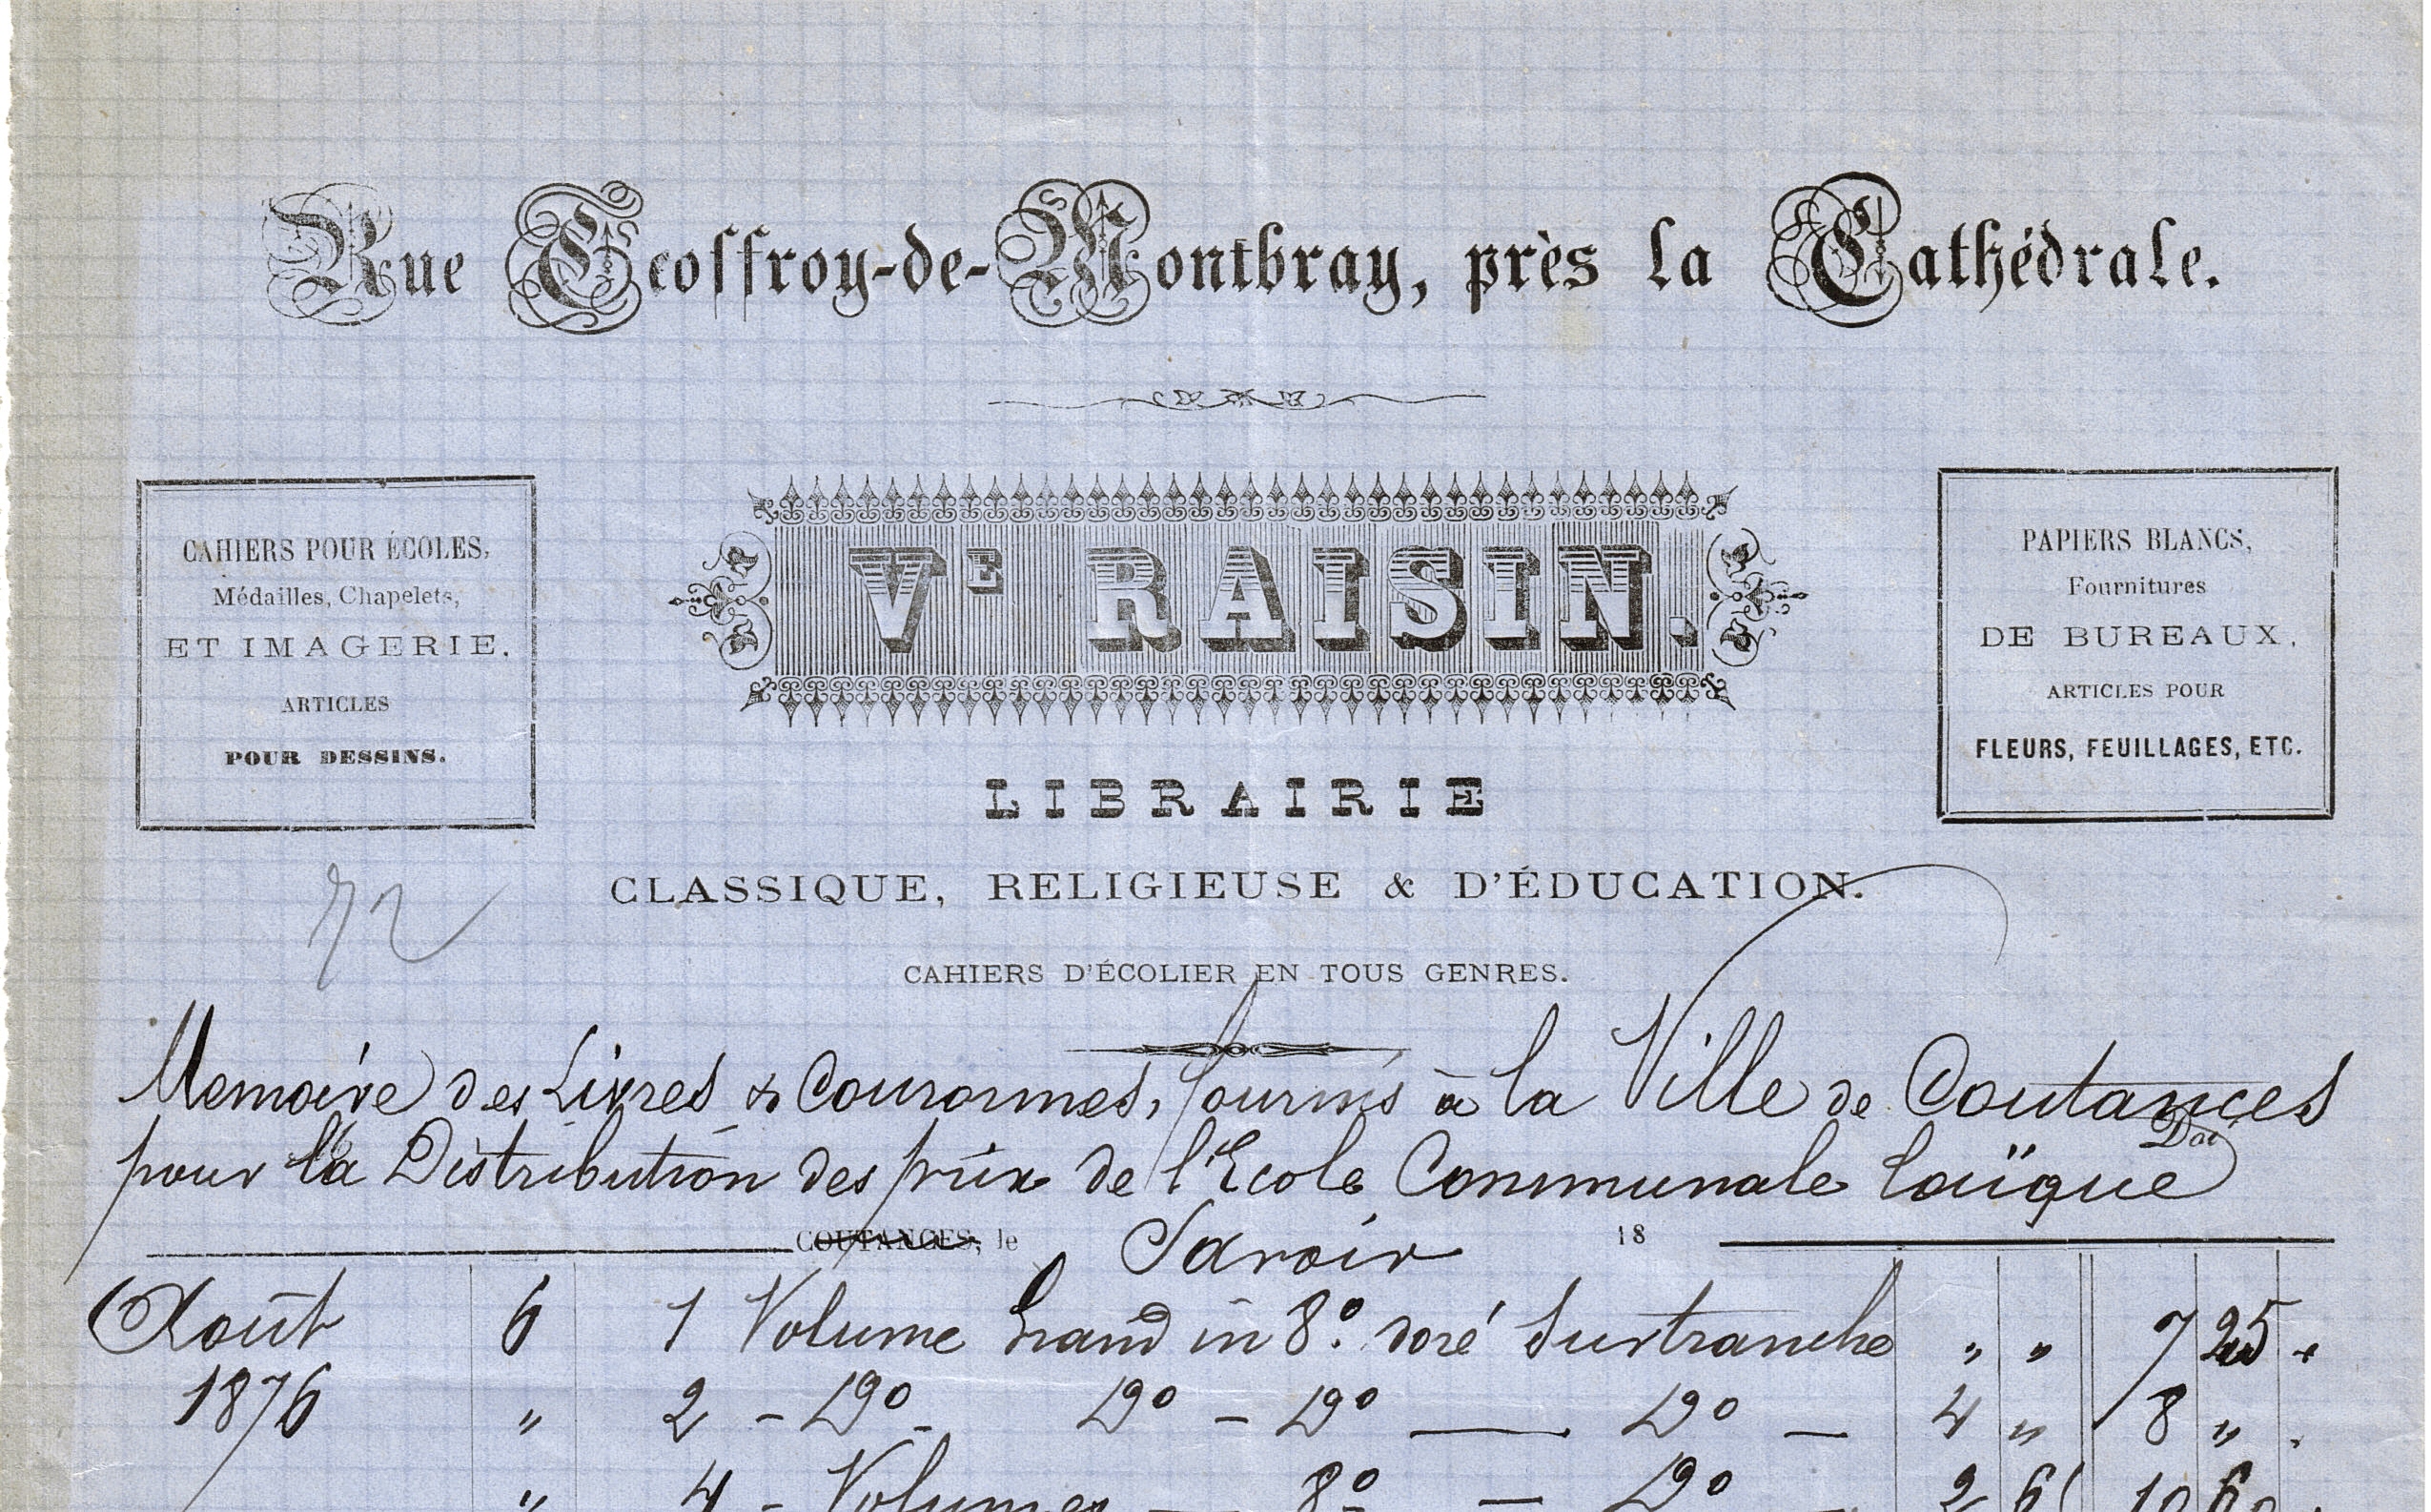 Rue Geoffroy-de-Montbray, près la Cathédrale.
CAHIERS POUR ÉCOLES,
Médailles, Chapelets,
ET IMAGERIE,
ARTICLES
POUR DESSINS.
VE RAISIN.
PAPIERS BLANCS,
Fournitures
DE BUREAUX,
ARTICLES POUR
FLEURS, FEUILLAGES, ETC.
LIBRAIRIE
CLASSIQUE, RELIGIEUSE & D'ÉDUCATION.
72
CAHIERS D'ÉCOLIER EN TOUS GENRES.
Memoire des Livres & Couronnes, fournis à la Ville de Coutances
pour la Distribution des prix de l'Ecole Communale laïque
COUTANCES, le Savoir 18
Août 6 1 Volume Grand in 8º. doré Surtranche " " 7 25
1876 " 2 - Dº - Dº - Dº — Dº — 4 " 8 "
" 4 - Volumes — 8º — Dº - 2 6 10 60